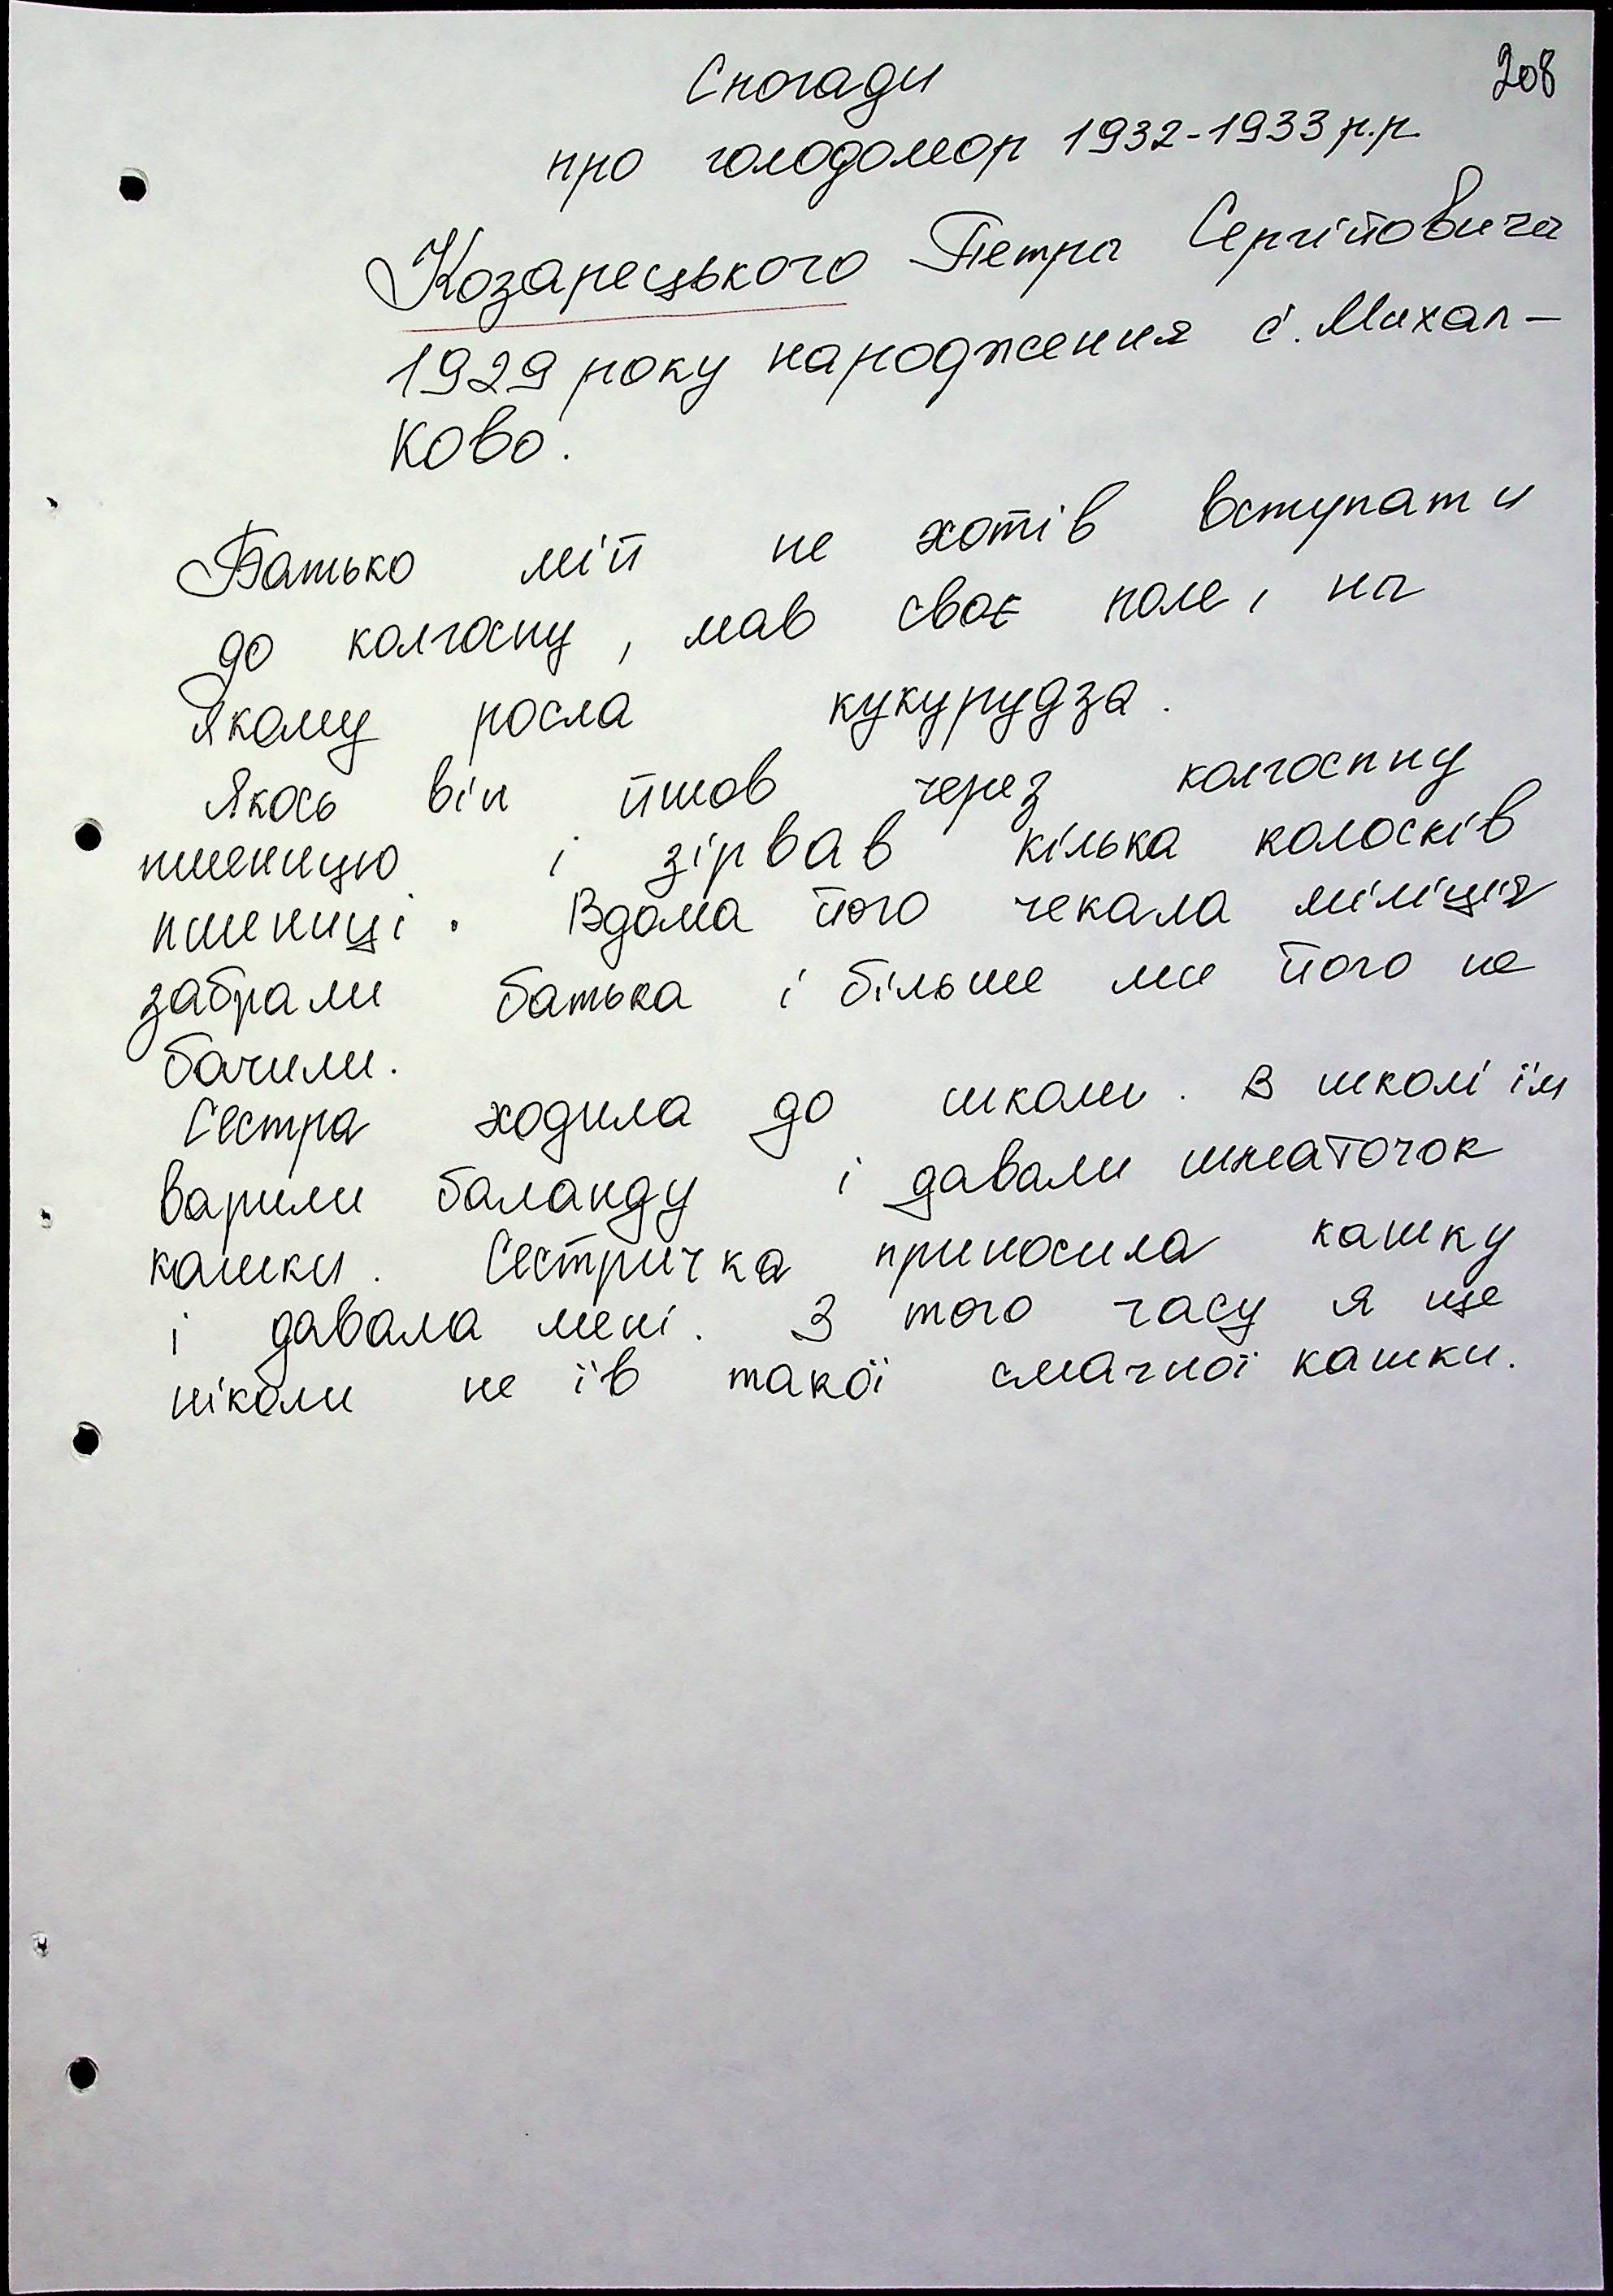 208
Спогади
про голодомор 1932-1933 р.р.
Козарецького Петра Сергійовича
1929 року народження с. Михал-
ково.
Батько мій не хотів вступати
до колгоспу, мав своє поле, на
якому росла кукурудза.
Якось він йшов через колгоспну
пшеницю і зірвав кілька колосків
пшениці. Вдома його чекала міліція
забрали батька і більше ми його не
бачили.
Сестра ходила до школи. В школі їм
варили баланду і давали шматочок
кашки. Сестричка приносила кашку
і давала мені. З того часу я ще
ніколи не їв такої смачної кашки.